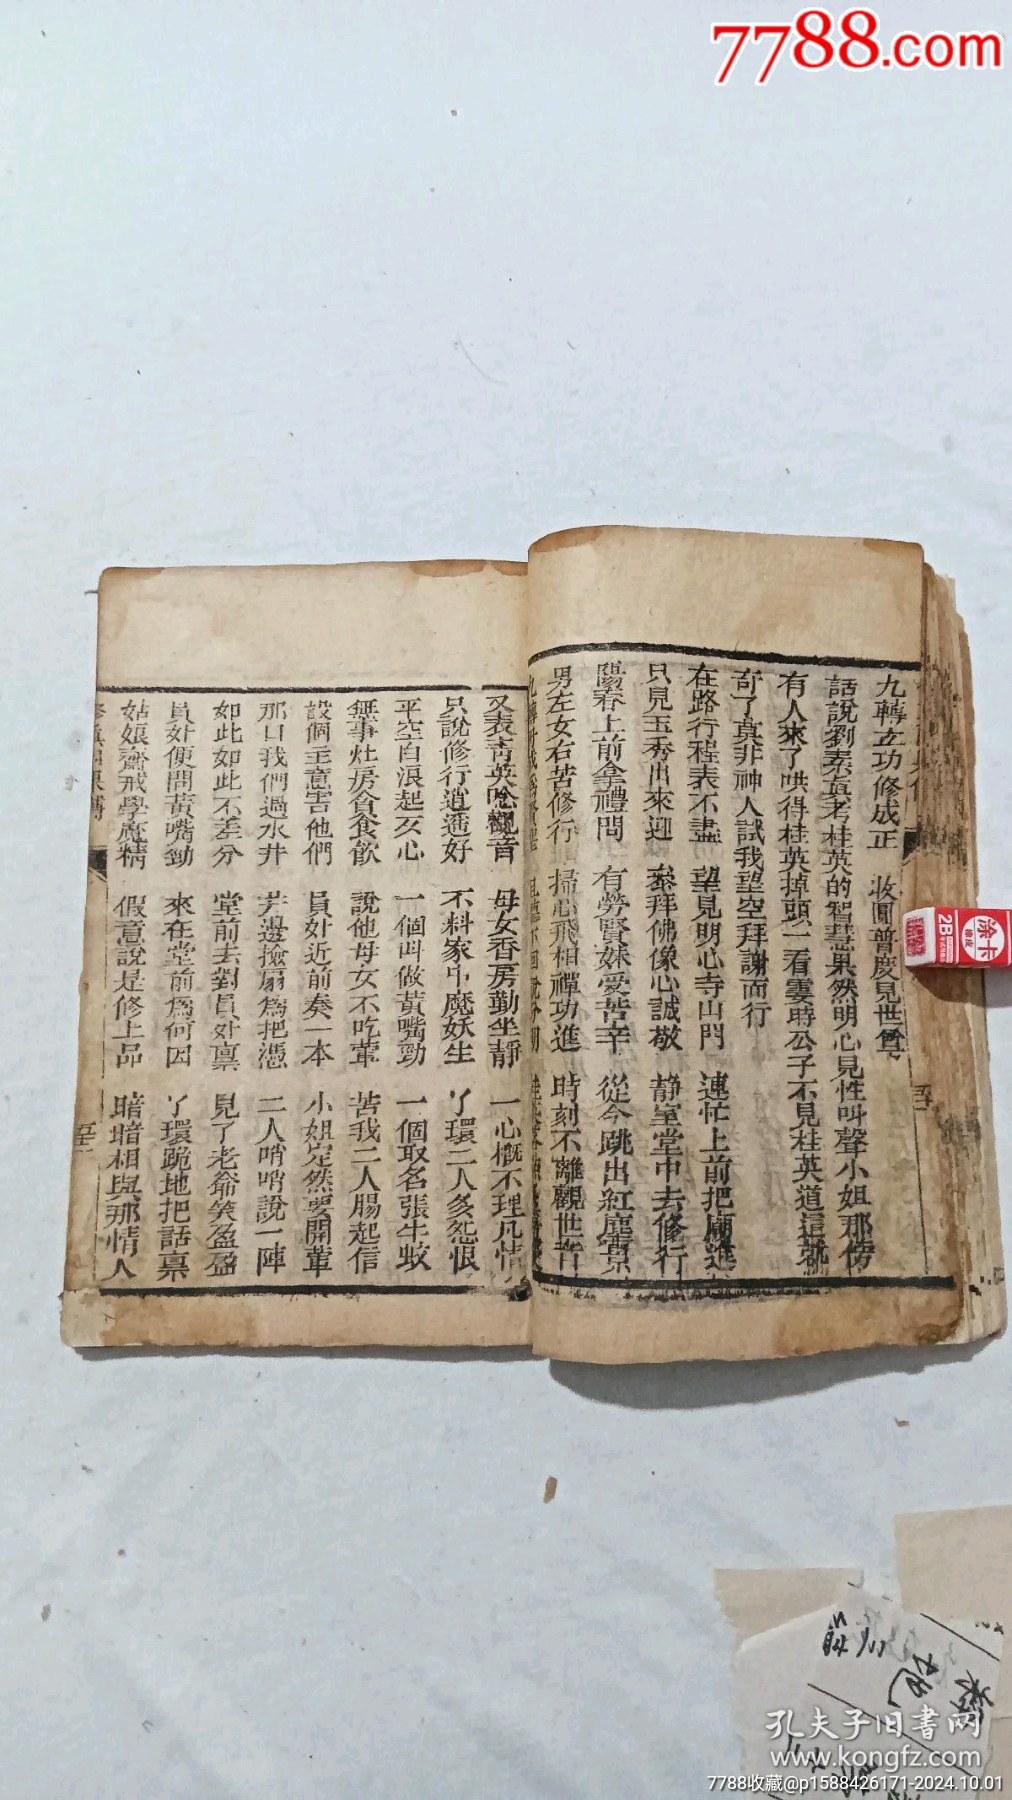 7788.com
九轉立功修成正 收圓普慶見世尊
話說劉素真考桂英的智慧果然明心見性叫聲小姐那傍
有人來了哄得桂英掉頭一看霎時公子不見桂英道這就
奇了莫非神人試我望空拜謝而行
在路行程表不盡 望見明心寺山門 連忙上前把廟進
只見玉秀出來迎 叅拜佛像心誠敬 静室堂中去修行
陽春上前拿禮問 有勞賢妹受苦辛 從今跳出紅塵景
男左女右苦修行 掃心飛相禪功進 時刻不離觀世音
又表青英唸觀音 母女香房勤坐静 一心概不理凡情
只說修行逍遥好 不料家中魔妖生 丫環二人多怨恨
平空白浪起歹心 一個叫做黃嘴勁 一個取名張牛蚊
無事灶房食食飲 說他母女不吃葷 苦我二人腸起信
設個主意害他們 員外近前奏一本 小姐定然要開葷
那日我們過水井 井邊撿扇為把憑 二人哨哨說一陣
如此如此不差分 堂前去對員外禀 見了老爺笑盈盈
員外便問黃嘴勁 來在堂前為何因 丫環跪地把話禀
姑娘齋戒學魔精 假意說是修上品 暗暗相與那情人
2B
孔夫子旧書网
www.kongfz.com
7788收藏@p1588426171-2024.10.01